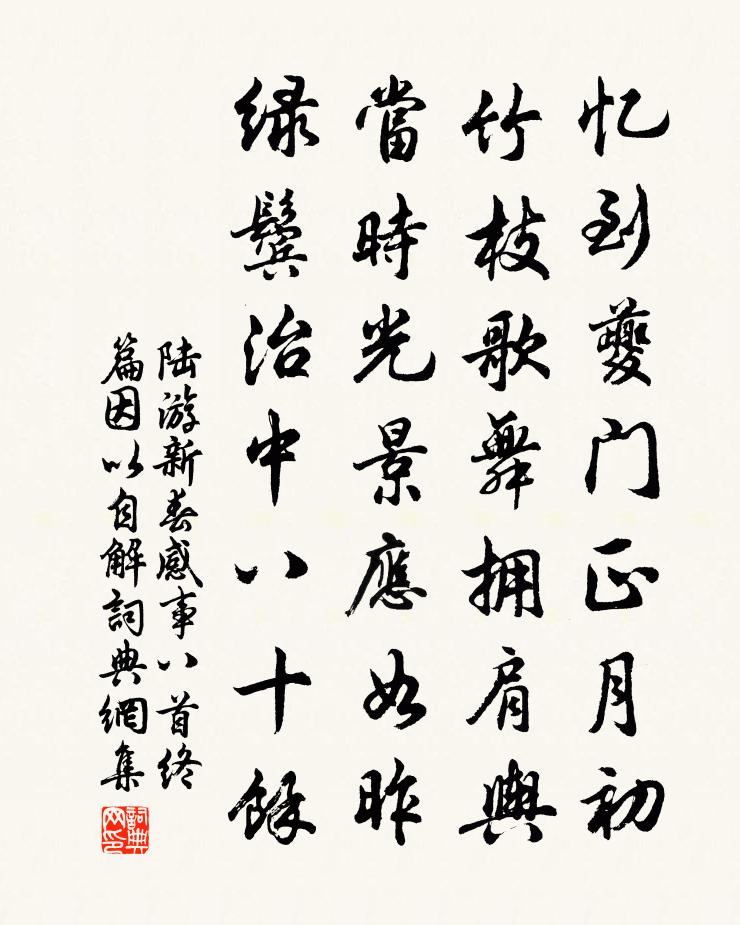 忆到夔门正月初
竹枝歌舞拥肩舆
當時光景應如昨
绿鬓治中八十餘
陆游新春感事八首终
篇因以自解詞典網集
詞典网印